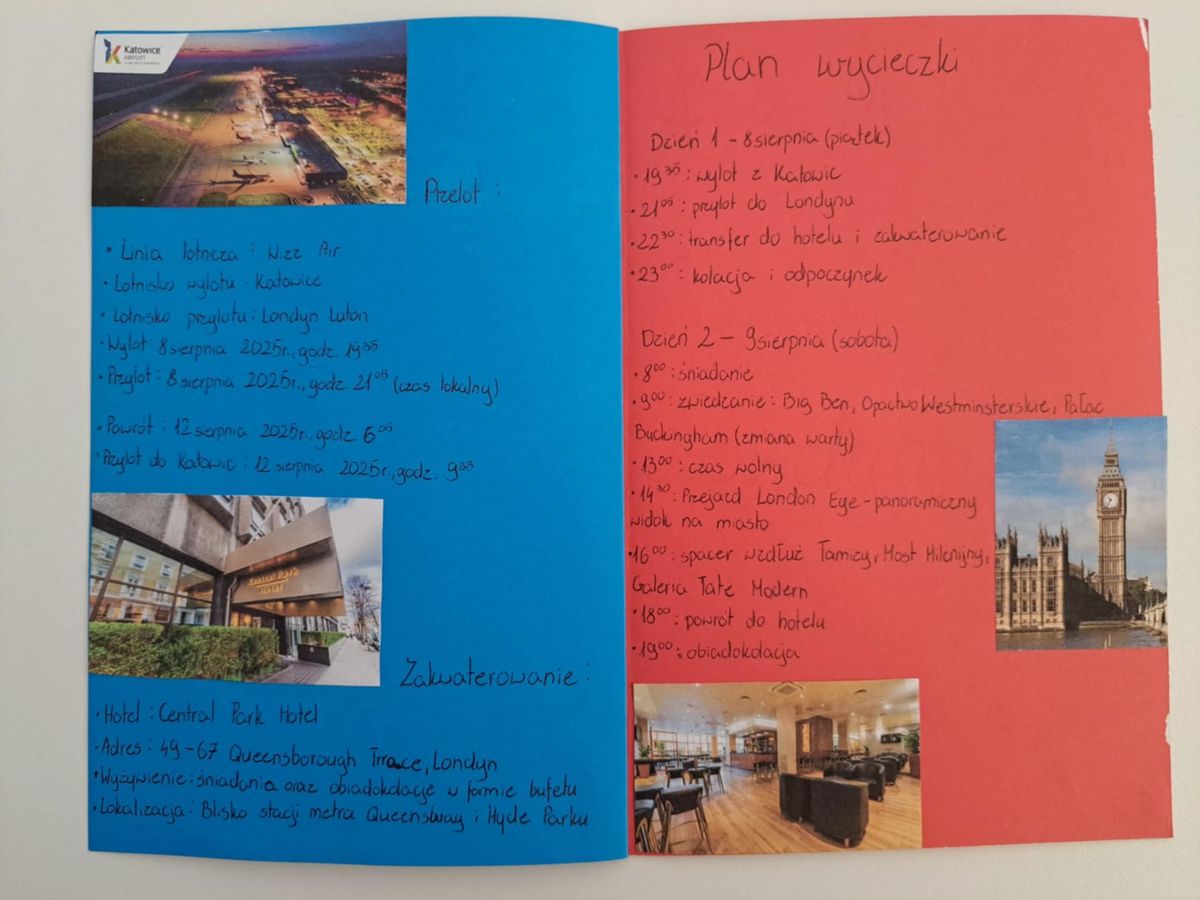 Katowice
AIRPORT
Przelot :
• Linia lotnicza : Wizz Air
• Lotnisko wylotu : Katowice
• Lotnisko przylotu : Londyn Luton
• Wylot : 8 sierpnia 2025r., godz. 19³⁵
• Przylot : 8 sierpnia 2025r., godz. 21⁰⁵ (czas lokalny)
• Powrót : 12 sierpnia 2025r., godz. 6⁰⁵
• Przylot do Katowic : 12 sierpnia 2025r., godz. 9³⁵
Central Park
Zakwaterowanie :
• Hotel : Central Park Hotel
• Adres : 49-67 Queensborough Trrace, Londyn
• Wyżywienie : śniadania oraz obiadokolacje w formie bufetu
• Lokalizacja : Blisko stacji metra Queensway i Hyde Parku
Plan wycieczki
Dzień 1 - 8 sierpnia (piątek)
• 19³⁵ : wylot z Katowic
• 21⁰⁵ : przylot do Londynu
• 22³⁰ : transfer do hotelu i zakwaterowanie
• 23⁰⁰ : kolacja i odpoczynek
Dzień 2 - 9 sierpnia (sobota)
• 8⁰⁰ : śniadanie
• 9⁰⁰ : zwiedzanie : Big Ben, Opactwo Westminsterskie, Pałac
Buckingham (zmiana warty)
• 13⁰⁰ : czas wolny
• 14³⁰ : Przejazd London Eye - panoramiczny
widok na miasto
• 16⁰⁰ : spacer wzdłuż Tamizy, Most Milenijny,
Galeria Tate Modern
• 18⁰⁰ : powrót do hotelu
• 19⁰⁰ : obiadokolacja